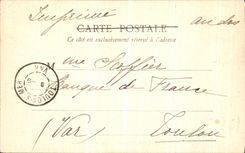 Imprimé
CARTE POSTALE
au dos
Ce côté est exclusivement réservé à l'adresse
Mme
Banque de France
(Var) Toulon